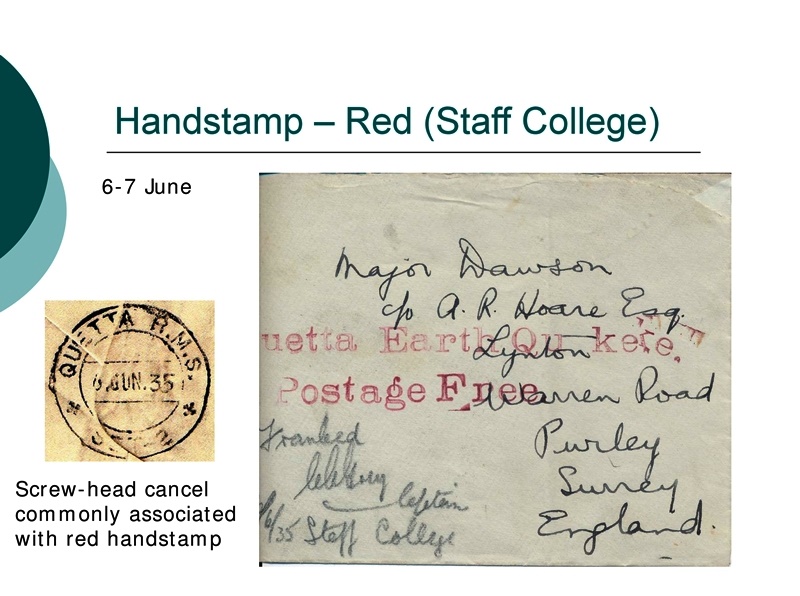 Handstamp – Red (Staff College)
6-7 June
Major Dawson
c/o A. R. Hoare Esq.
uetta Earth Qu ke
Lynton
Postage Free
Warren Road
Purley
Surrey
England.
Franked
Captain
6/35 Staff College
QUETTA R.M.S.
6.JUN.35
Screw-head cancel
commonly associated
with red handstamp